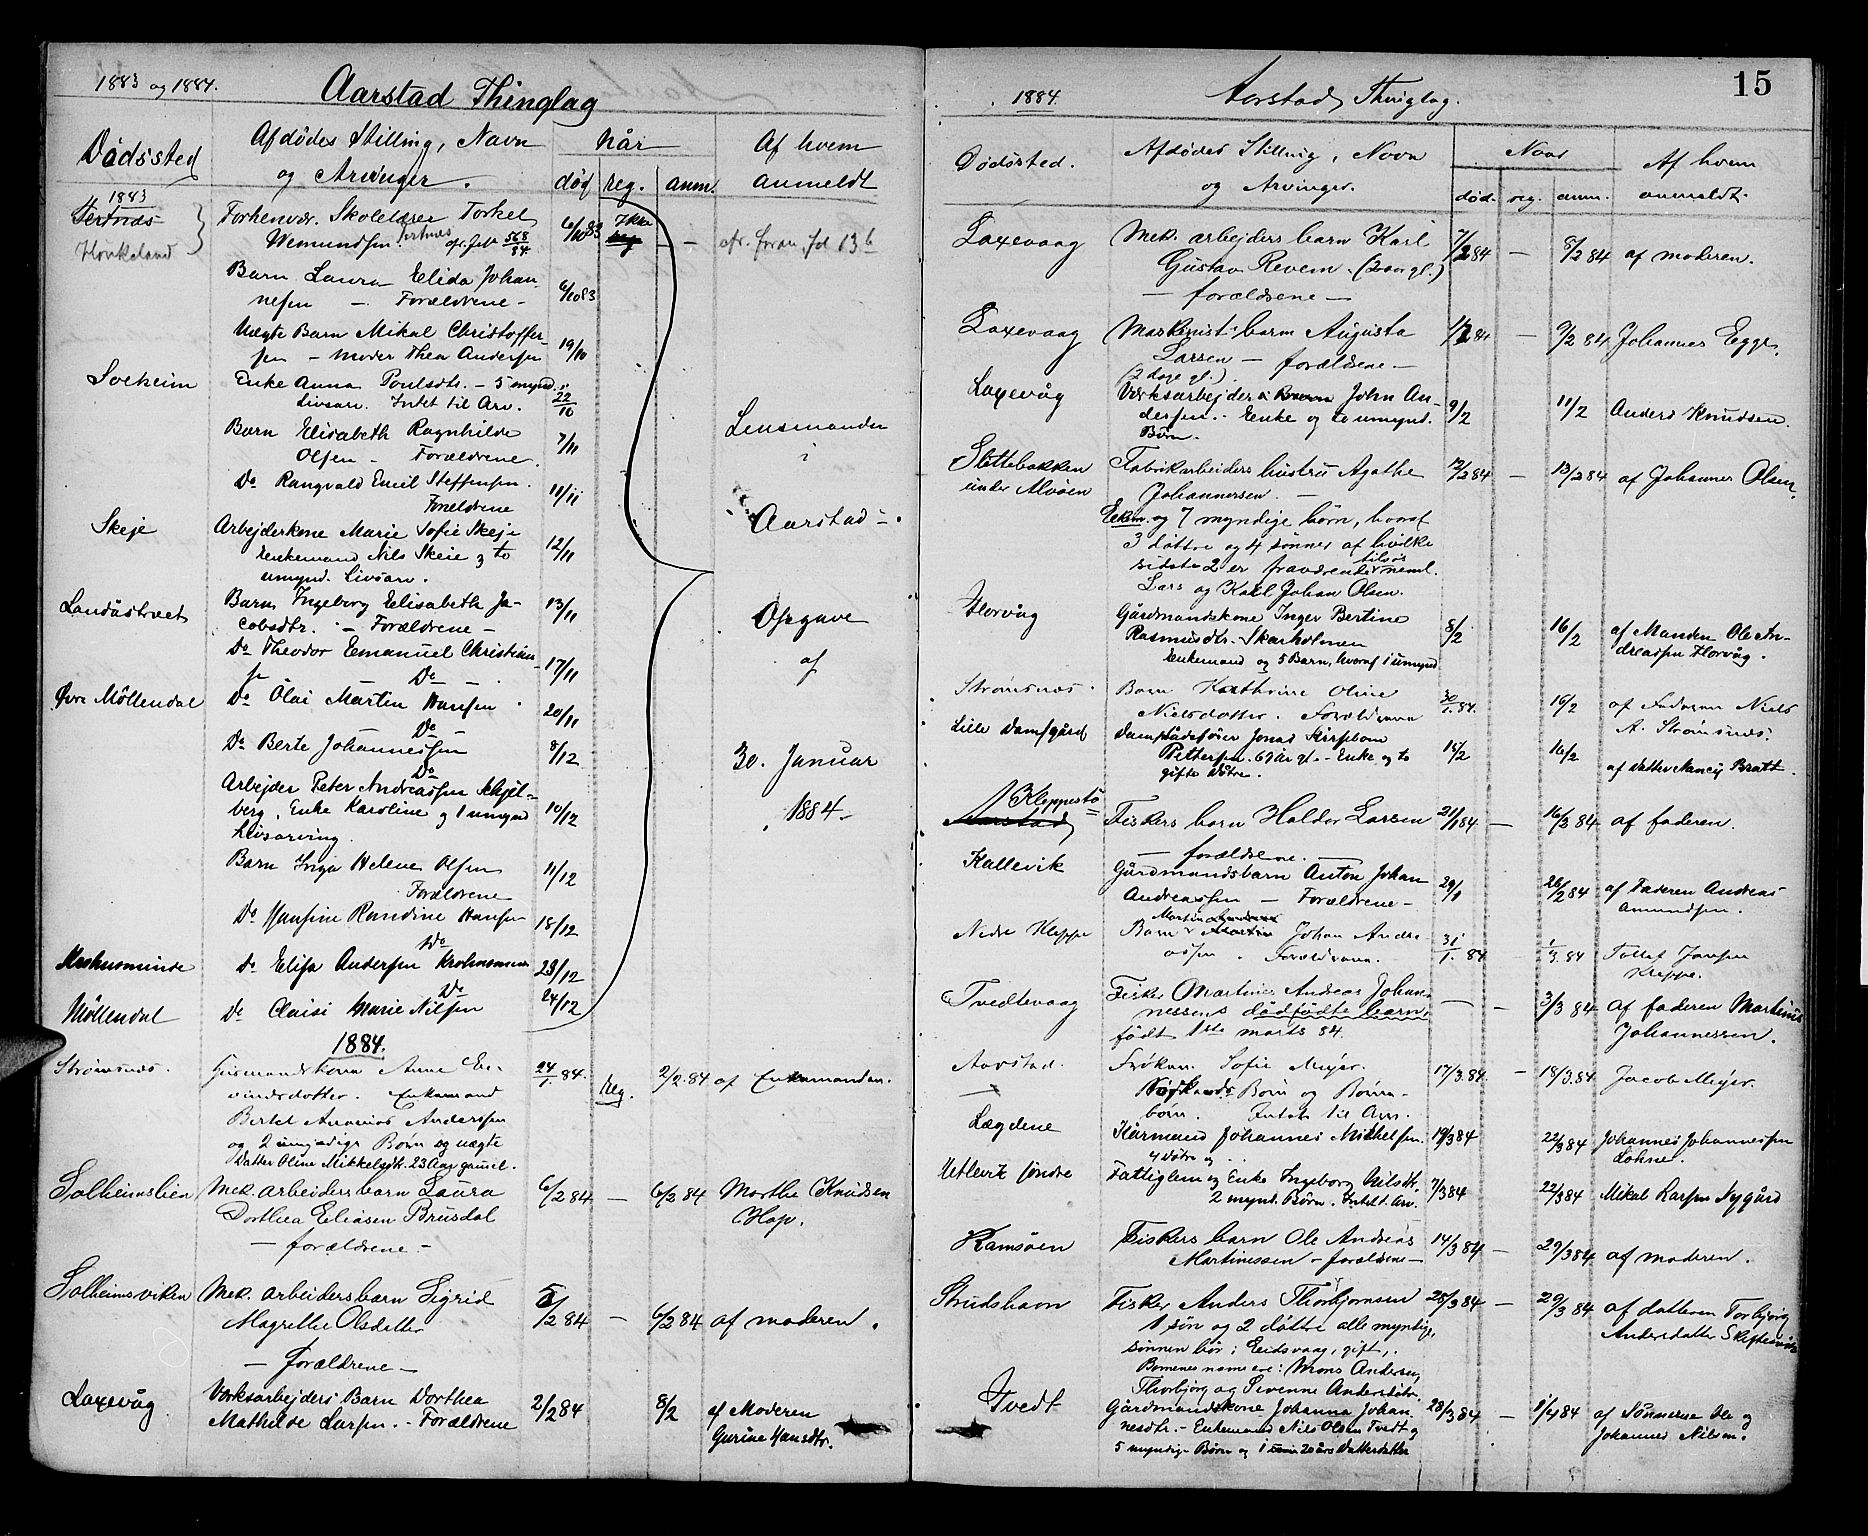 1883 og 1884.
Aarstad Thinglag
Dødssted
Afdødes Stilling, Navn
og Arvinger.
når
død reg. anm.
Af hvem
anmeldt
1883
Tertnæs
Haukeland
Forhenvær. Skolelærer Torkel
Wemundsen Tertnæs cfr. feb 568/84
6/10 83 Ikke reg - - cfr. foran fol 13 b
Barn Laura Elida Johan-
nesen - Forældrene -
6/10 83
Uægte Barn Mikal Christoffer-
sen - Moder Thea Andersen
19/10
Solheim
Enke Anna Poulsdtr. - 5 mynd.
Livsarv. Intet til Arv.
22/10
Barn Elisabeth Ragnhilde
Olsen - Forældrene.
7/11
Lensmanden
i
Do Rangvald Emil Steffensen.
Forældrene
11/11
Aarstad -
Skeje
Arbejderkone Marie Sofie Skeje
Enkemand Nils Skeie og to
umynd. Livsarv.
12/11
Landåstræet
Barn Ingeborg Elisabeth Ja-
cobsdtr. - Forældrene -
13/11
Opgave
Do Theodor Emanuel Christian-
sen Do -
17/11
af
Øvre Möllendal
Do Olai Martin Hansen
Do
20/11
Do Berte Johannessen
Do
8/12
30. Januar
Arbejder Peter Andreassen Skjel-
berg, Enke Karoline og 1 umynd
Livsarving.
10/12
1884.
Barn Inga Helene Olsen
Forældrene
11/12
Do Hansine Randine Hansen
Do
18/12
Krohnsminde
Do Elisa Andersen Krohnsminde
Do
23/12
Möllendal
Do Claisi Marie Nilsen
24/12
1884.
Strømsnæs.
Husmandskone Anne Ei-
vindsdotter. Enkemand
Bertel Andersen
og 2 umyndige Børn og uægte
Datter Oline Mikkelsdtr. 23 Aar gammel.
24/1. 84. reg. 2/2. 84 af Enkemanden.
Solheimslien
Mek. arbeiders barn Laura
Dorthea Eliasen Brusdal
- forældrene -
6/2 84. - 6/2 84 Marthe Knudsen
Hop.
Solheimsviken
Mek. arbeidersbarn Sigrid
Magrethe Olsdatter
- forældrene -
5/2 84 - 6/2 84 af moderen.
Laxevåg
Værksarbejders Barn Dorthea
Mathilde Larsen. - Forældrene
2/2 84 8/2 af Moderen
Gurine Hansdtr.
1884.
Aarstad Thinglag.
15
Dødssted.
Afdødes Stilling, Navn
og Arvinger.
Naar
død. reg. anm.
Af hvem
anmeldt.
Laxevaag
Mek. arbejders barn Karl
Gustav Revem. (2 aar gl.)
- forældrene -
7/2 84 - 8/2 84 af moderen.
Laxevaag
Maskinist barn Augusta
Larsen - forældrene -
(2 dage gl.)
1/2 84 - 9/2 84 Johannes Egge.
Laxevåg
Værksarbejder John An-
dersen. - Enke og to umynd.
Børn.
9/2 11/2 Anders Knudsen.
Slettebakken
under Alvøen
Fabrikarbeiders hustru Agathe
Johannessen. -
Enkem. og 7 myndige børn, hvoraf
3 døttre og 4 sønner af hvilke
sidste 2 er fraværende tilsøs neml.
Lars og Karl Johan Olsen.
12/2 84 - 13/2 84 af Johannes Olsen.
Horvåg
Gårdmandskone Inger Bertine
Rasmusdtr. Skarholmen
Enkemand og 5 Barn, hvoraf 1 umynd
8/2 16/2 af Manden Ole An-
dreassen Horvåg.
Strømsnæs.
Barn Kathrine Oline
Nielsdotter. Forældrene
30/1. 84. 16/2 af Faderen Niels
A. Strømsnæs.
Lille Damsgård
Dampbådsfører Jonas
Pettersen. 69 År gl. - Enke og to
gifte Døtre.
15/2 16/2 af Datter Nancy Bratt.
Kleppestö
Aarstad
Fiskers barn Haldor Larsen
- forældrene. -
21/1 84 - 16/2 84 af faderen.
Kallevik
Gårdmandsbarn Anton Johan
Andreassen - Forældrene -
29/1 28/2 84 af Faderen Andreas
Amundsen.
Nedre Kleppe
Barn Martin Johan Andre
assen. Forældrene.
31/1. 84 1/3. 84 Tollef Jansen
Kleppe.
Tvedtevaag
Fisker Martines Andreas Johan-
nessens dødfødte barn,
født 1ste marts 84.
- - 3/3 84 af faderen Martinus
Johannessen.
Aarstad.
Frøken Sofie Meyer.
Søskende Børn og Børne-
børn.
17/3. 84. - 18/3. 84 Jacob Meyer.
Lægdene
Kårmand Johannes Mikkelsen.
4 Døtre og
19/3 84 22/3 84 Johannes Johannessen
Lohne.
Fattiglem og Enke Ingeborg Nilsdtr.
2 mynd. Børn. Intet t. Arv.
7/3 84 22/3 84 Mikal Larsen Nygård
Ramsöen
Fiskers barn Ole Andreas
Martinussen - forældrene -
14/3 84 - 29/3 84 af moderen.
Strudshavn
Fisker Anders Thorbjørnsen
1 søn og 2 døttre alle myndige,
sønnen bor i Eidsvaag, gift,
Børnenes navne ere: Mons Andersen,
Thorbjørg og Sivenne Andersdøtre.
28/3 84 - 29/3 84 af datteren Torbjørg
Andersdatter
Tvedt
Gårdmandskone Johanna Johan
nesdtr. - Enkemand Nils Olsen Tvedt og
5 myndige Børn og 1 20 års Datterdatter
28/3 84 - 1/4 84 af Sønnerne Ole og
Johannes Nilsen.